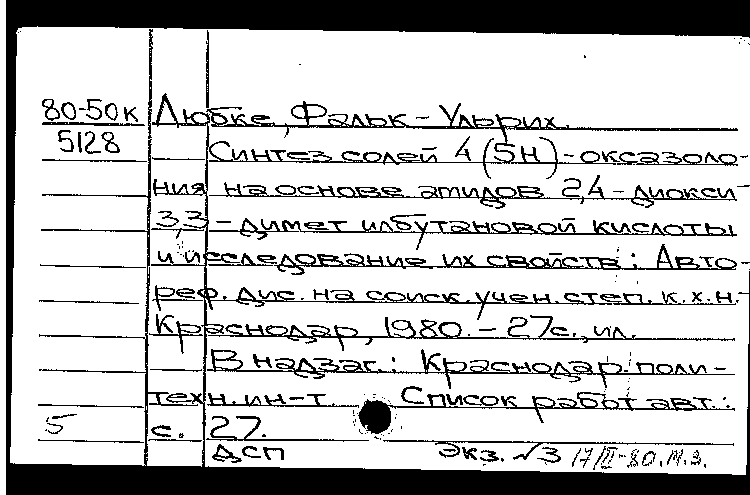 80-50к Любке, Фальк-Ульрих.
5128 Синтез солей 4(5H)-оксазоло-
ния на основе амидов 2,4-диокси-
3,3-диметилбутановой кислоты
и исследование их свойств: Авто-
реф. дис. на соиск. учен. степ. к.х.н.-
Краснодар, 1980.-27с., ил.
В надзаг.: Краснодар. поли-
техн. ин-т. Список работ авт.:
5 с. 27.
ДСП Экз. №3 17/III-80. М.З.